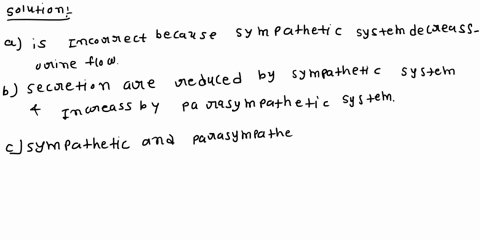 Solution:
a) is Incorrect because sympathetic system decreass-
urine flow.
b) secretion are reduced by sympathetic system
& Increass by parasympathetic system.
c) sympathetic and parasympathe